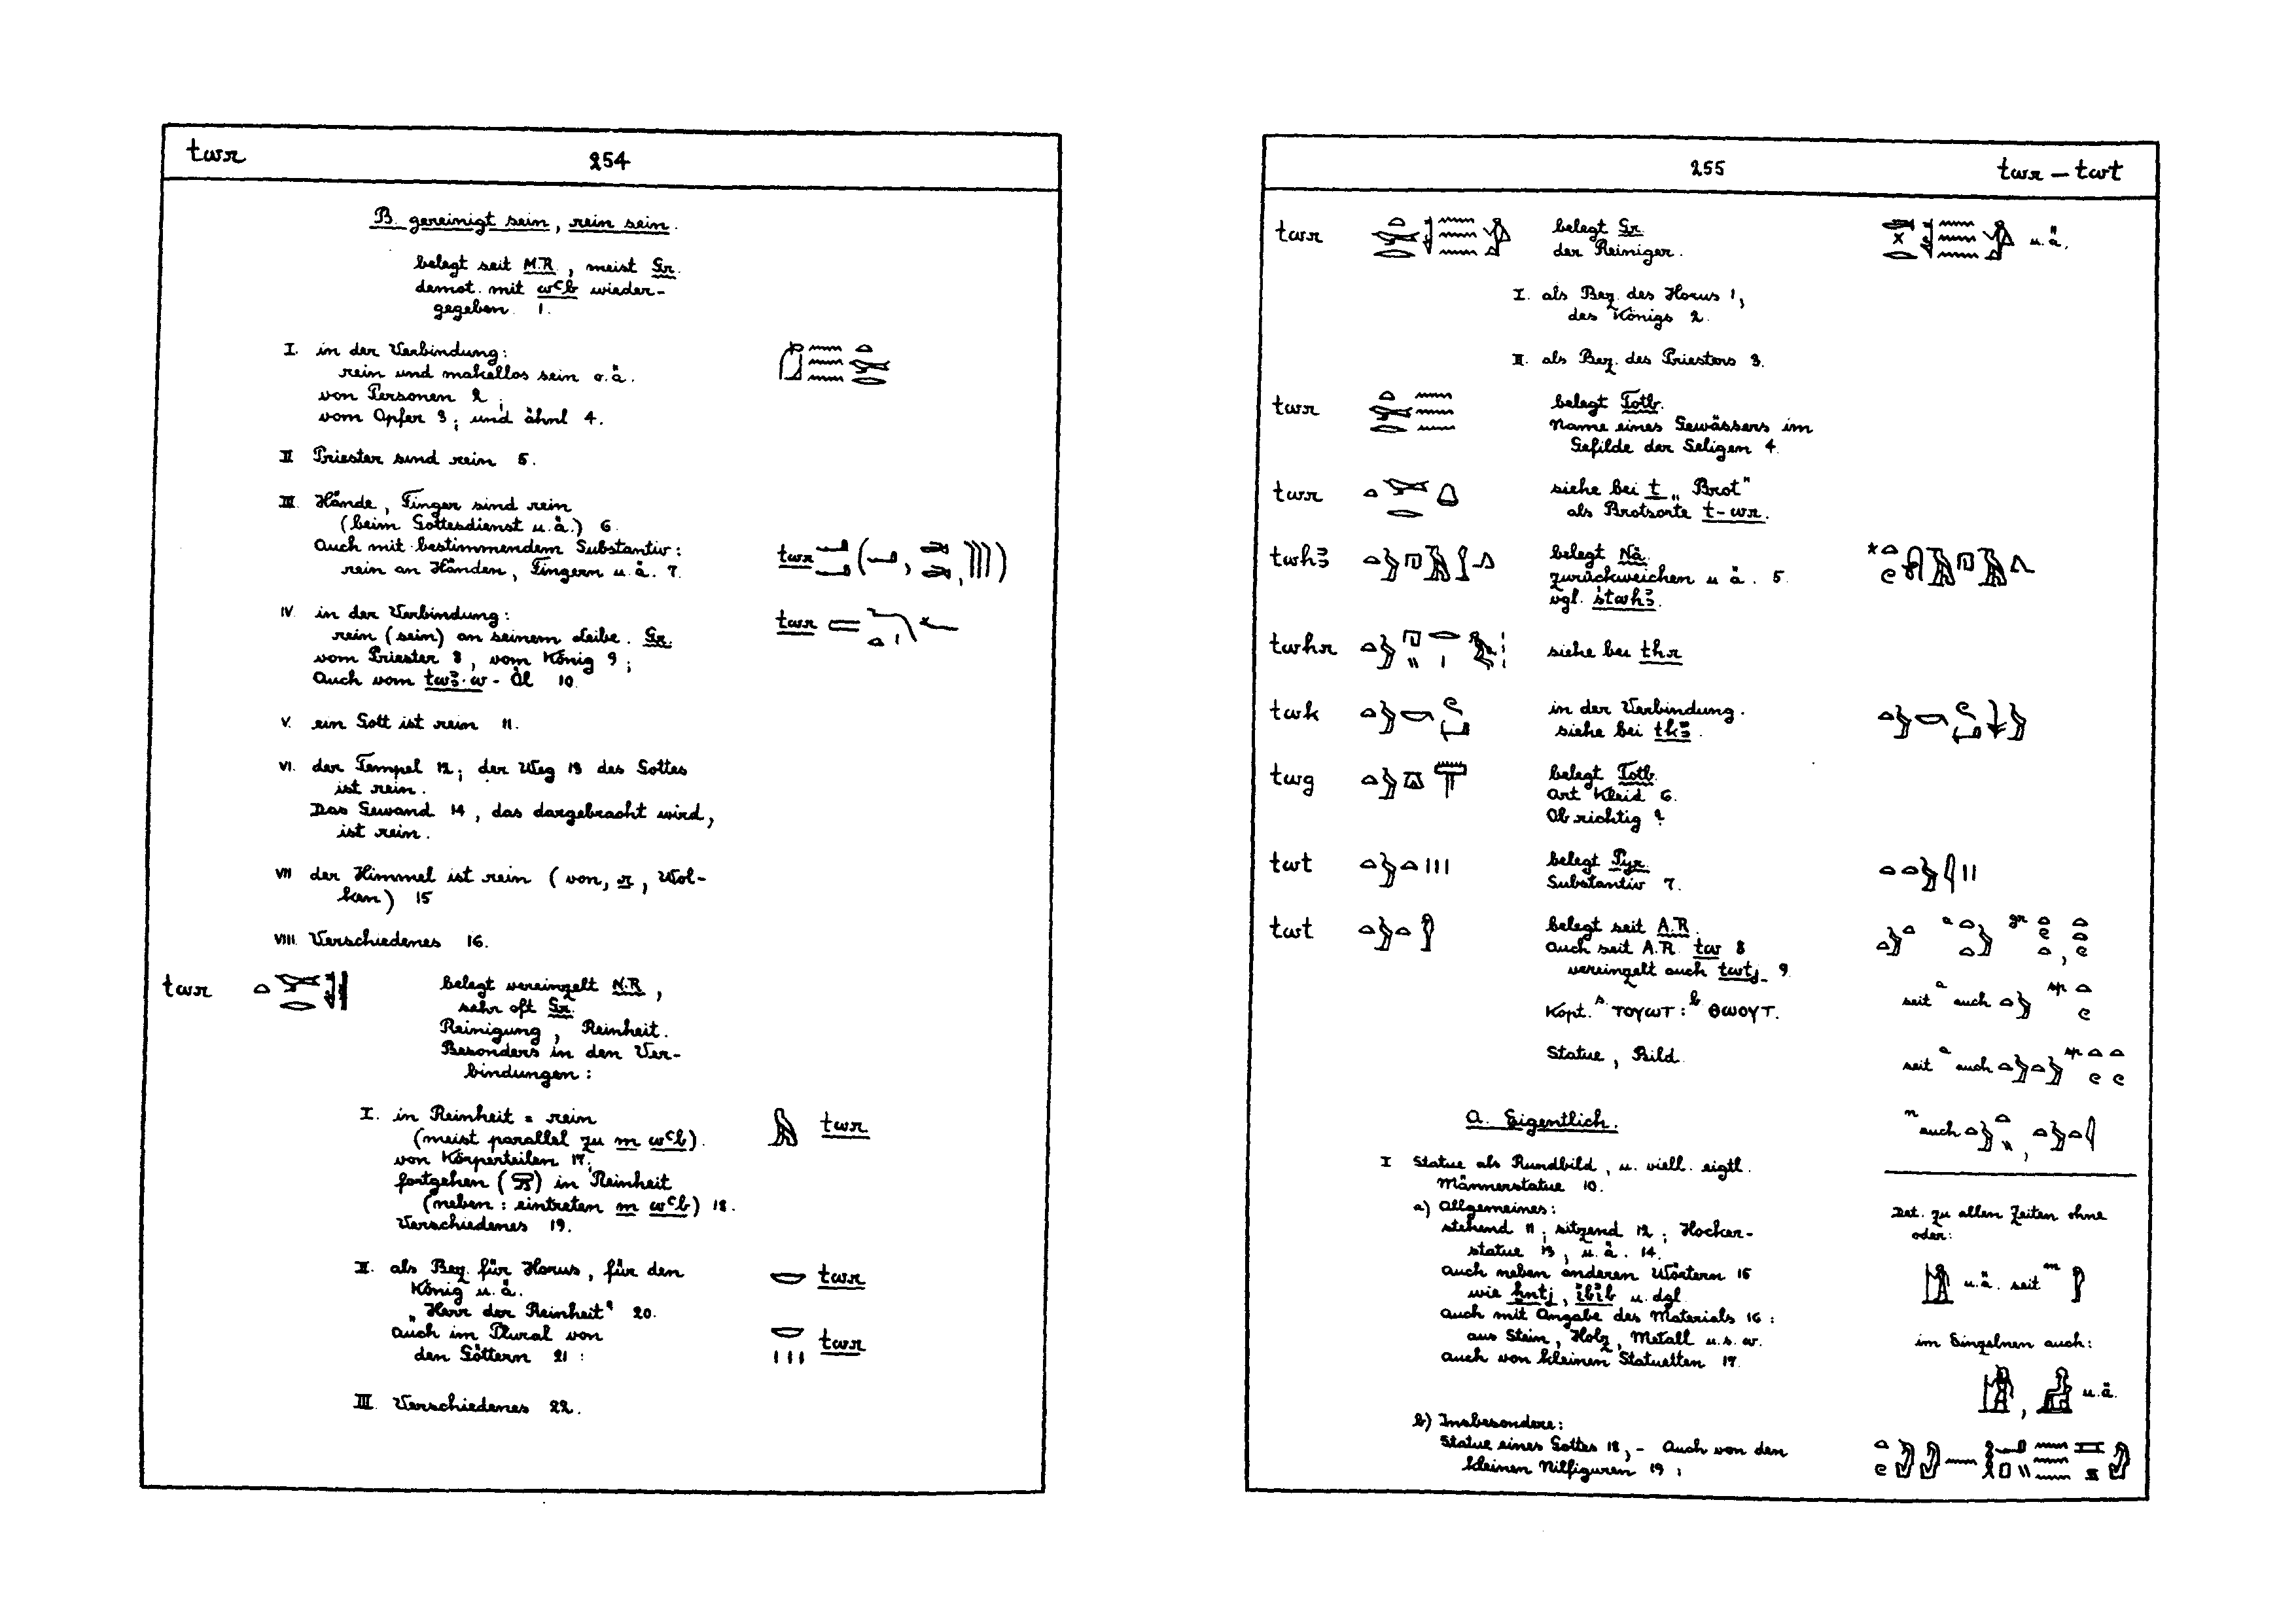 twr 254
B. gereinigt sein, rein sein.
belegt seit M.R., meist Gr.
demot. mit wꜥb wieder-
gegeben 1.
I. in der Verbindung:
rein und makellos sein o.ä.
von Personen 2;
vom Opfer 3; und ähnl 4.
II Priester sind rein 5.
III. Hände, Finger sind rein
(beim Gottesdienst u.ä.) 6.
Auch mit bestimmendem Substantiv: twr
rein an Händen, Fingern u.ä. 7.
IV. in der Verbindung: twr
rein (sein) an seinem Leibe. Gr.
vom Priester 8, vom König 9;
Auch vom twꜣ·w - Öl 10.
V. ein Gott ist rein 11.
VI. der Tempel 12; der Weg 13 des Gottes
ist rein.
Das Gewand 14, das dargebracht wird,
ist rein.
VII der Himmel ist rein (von, r, Wol-
ken) 15
VIII. Verschiedenes 16.
twr belegt vereinzelt N.R,
sehr oft Gr.
Reinigung, Reinheit.
Besonders in den Ver-
bindungen:
I. in Reinheit = rein twr
(meist parallel zu m wꜥb).
von Körperteilen 17;
fortgehen ( ) in Reinheit
(neben: eintreten m wꜥb) 18.
Verschiedenes 19.
II. als Bez. für Horus, für den twr
König u.ä.
„Herr der Reinheit“ 20.
Auch im Plural von twr
den Göttern 21:
III. Verschiedenes 22.
255 twr – twt
twr belegt Gr. u.ä.
der Reiniger.
I. als Bez. des Horus 1,
des Königs 2.
II. als Bez. des Priesters 3.
twr belegt Totb.
Name eines Gewässers im
Gefilde der Seligen 4.
twr siehe bei t „Brot“
als Brotsorte t-wr.
twhꜣ belegt Nä.
zurückweichen u ä. 5.
vgl. stwhꜣ.
twhr siehe bei thr
twk in der Verbindung.
siehe bei tkꜣ.
twg belegt Totb.
Art Kleid 6.
Ob richtig?
twt belegt Pyr.
Substantiv 7.
twt belegt seit A.R.
Auch seit A.R. tw 8
vereinzelt auch twtj 9
Kopt. s. ⲧⲟⲩⲱⲧ: b ⲑⲱⲟⲩⲧ.
seit a auch sp
Statue, Bild
seit a auch sp
n auch ,
A. Eigentlich.
I Statue als Rundbild, u. viell. eigtl.
Männerstatue 10.
a) Allgemeines:
stehend 11; sitzend 12; Hocker-
statue 13, u.ä. 14.
Auch neben anderen Wörtern 15
wie ẖntj, ỉbỉb u. dgl
Auch mit Angabe des Materials 16:
aus Stein, Holz, Metall u.s.w.
Auch von kleinen Statuetten 17.
b) Insbesondere:
Statue eines Gottes 18, - Auch von den
kleinen Nilfiguren 19:
Det. zu allen Zeiten ohne
oder:
u.ä. seit m
im Einzelnen auch:
, u.ä.